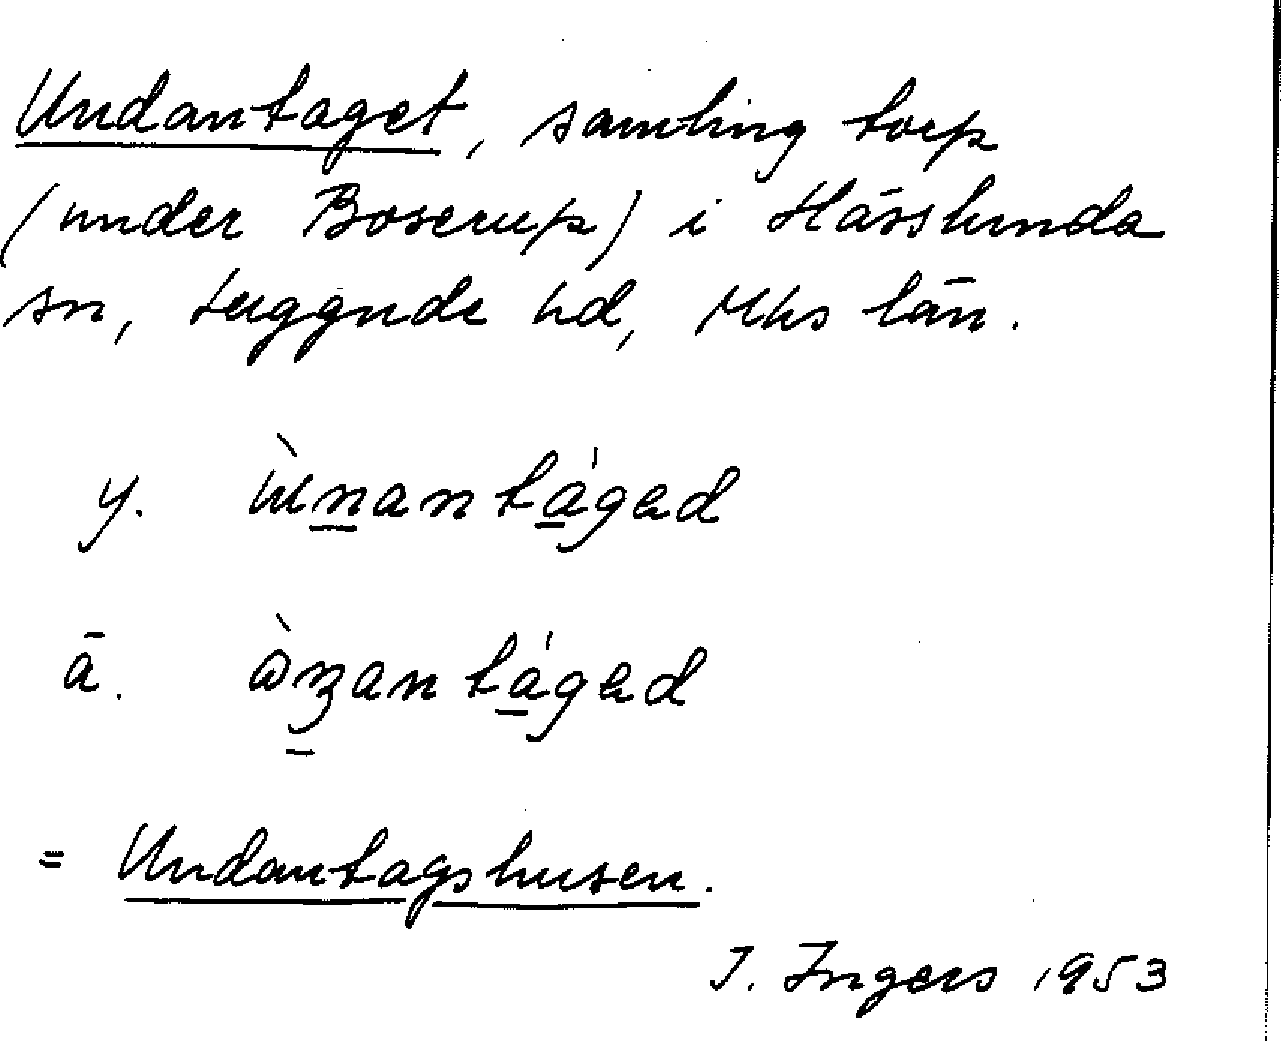 Undantaget, samling torp
(under Boserup) i Hässlunda
sn, Luggude hd, Mhs län.
y. ùnantágad
ä. àʒantágad
= Undantagshusen.
I. Ingers 1953